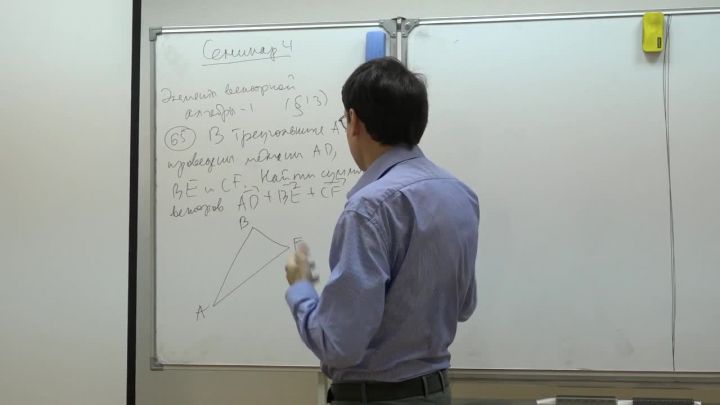 Семинар 4
Элементы векторной
алгебры - 1 (§ 13)
65 В треугольнике A
проведены медианы AD,
BE и CF. Найти сумму
векторов AD + BE + CF
B
A